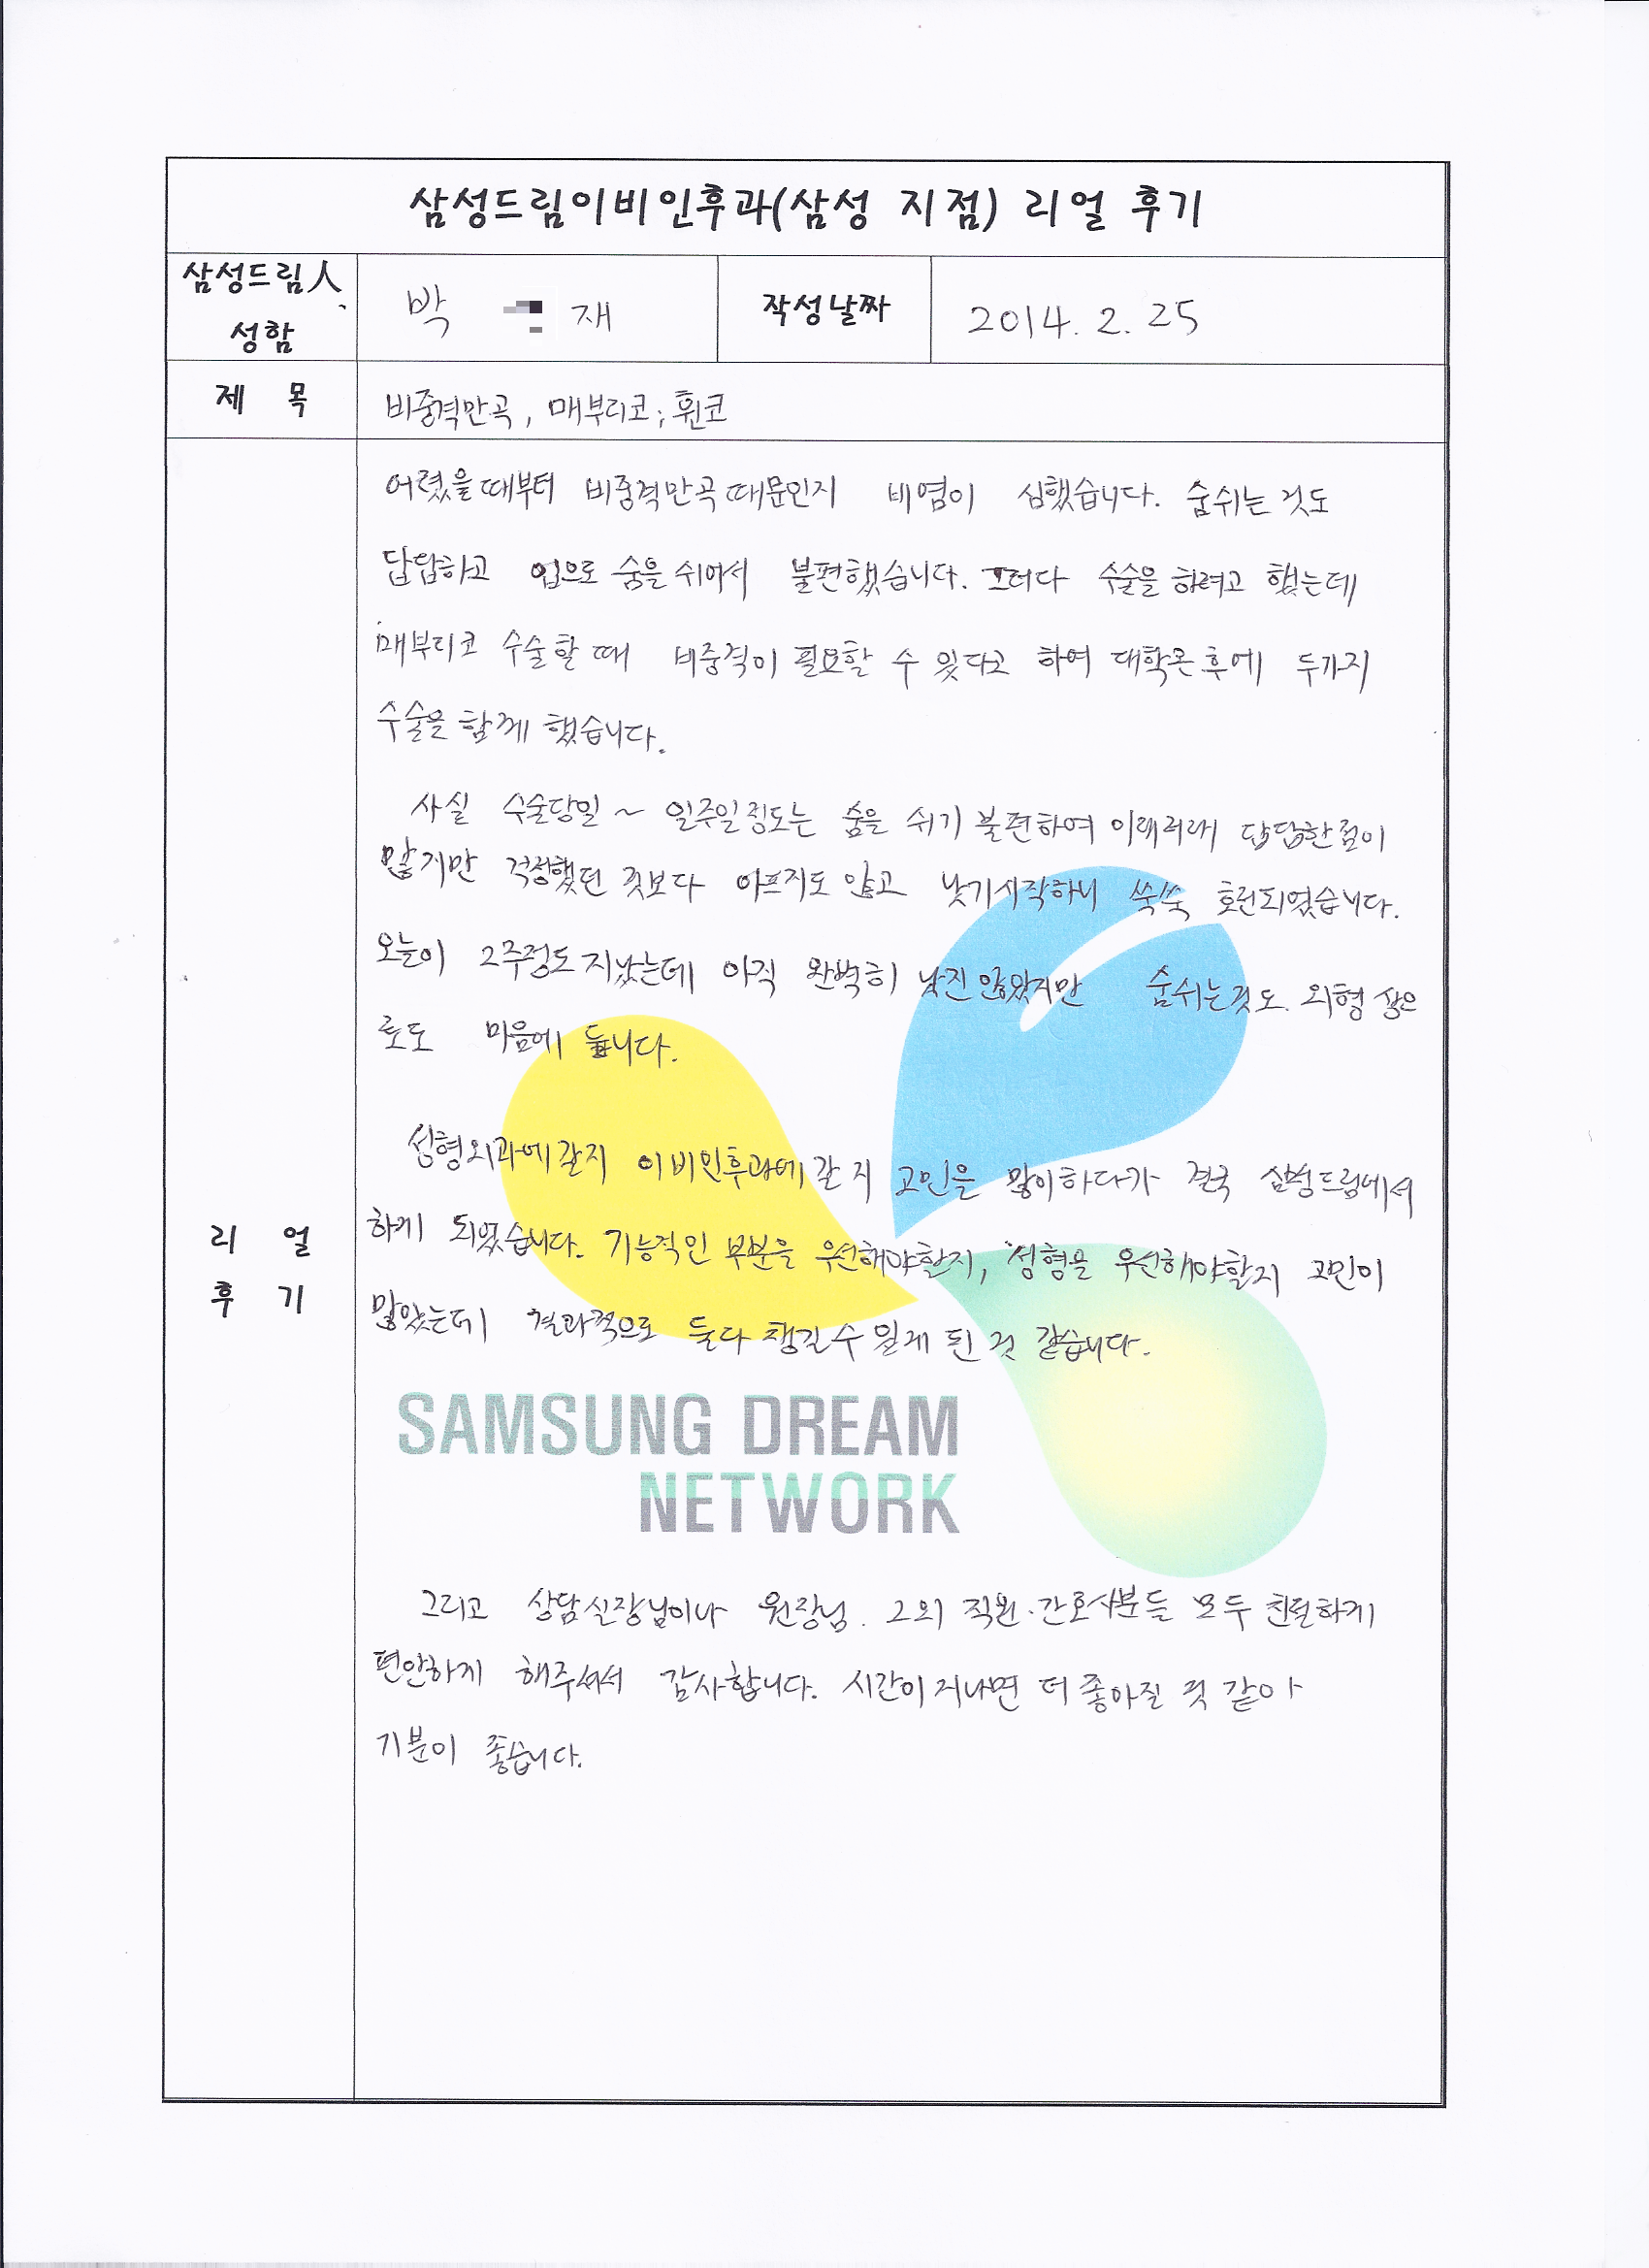 삼성드림이비인후과(삼성 지점) 리얼 후기
삼성드림人
성함
박 재
작성날짜
2014. 2. 25
제 목
비중격만곡, 매부리코, 휜코
어렸을때부터 비중격만곡때문인지 비염이 심했습니다. 숨쉬는 것도
답답하고 입으로 숨을 쉬어서 불편했습니다. 그러다 수술을 하려고 했는데
매부리코 수술할 때 비중격이 필요할 수 있다고 하여 대학온후에 두가지
수술을 함께 했습니다.
사실 수술당일 ~ 일주일정도는 숨을 쉬기 불편하여 이래저래 답답한점이
많지만 걱정했던 것보다 아프지도 않고 낫기시작하니 쑥쑥 호전되었습니다.
오늘이 2주정도 지났는데 아직 완벽히 낫진 않았지만 숨쉬는것도. 외형 상으
로도 마음에 듭니다.
성형외과에갈지 이비인후과에 갈지 고민을 많이하다가 결국 삼성드림에서
하게 되었습니다. 기능적인 부분을 우선해야할지, 성형을 우선해야할지 고민이
많았는데 결과적으로 둘다 챙길수 있게 된 것 같습니다.
SAMSUNG DREAM
NETWORK
리 얼
후 기
그리고 상담실장님이나 원장님. 그외 직원·간호사분들 모두 친절하게
편안하게 해주셔서 감사합니다. 시간이 지나면 더 좋아질 것 같아
기분이 좋습니다.